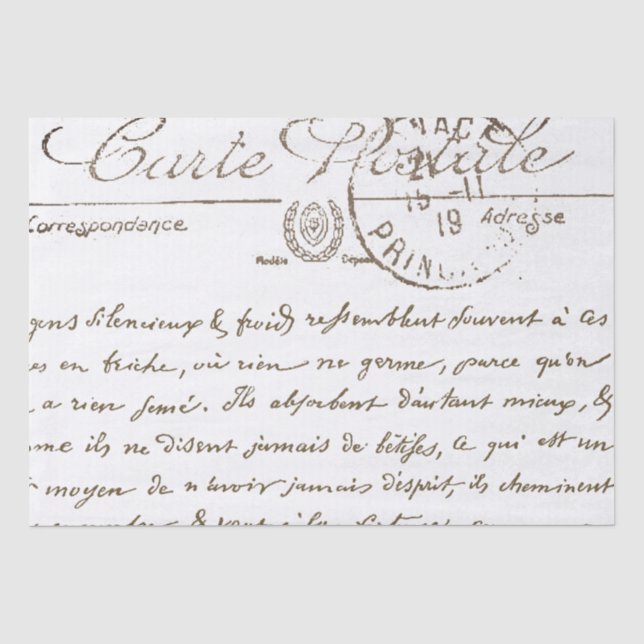 Carte Postale
15-11
19
PRIN
Correspondance
Adresse
Modèle Déposé
gens silencieux & froids ressemblent souvent à ces
es en friche, où rien ne germe, parce qu'on
a rien semé. Ils absorbent d'autant mieux, &
me ils ne disent jamais de bêtises, ce qui est un
moyen de n'avoir jamais d'esprit, ils cheminent
& vont à la